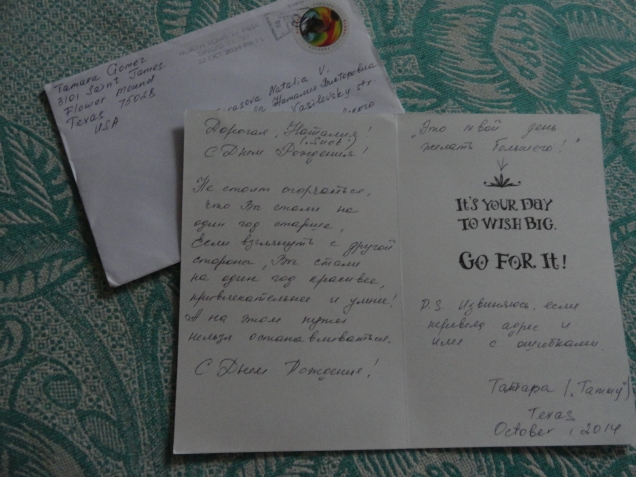 Tamara Gomez
3101 Saint James
Flower Mound
Texas 75028
USA
Natalia V.
Наталии Викторовна
Vasilevsky str.
Дорогая, Наталия!
С Днем Рождения!
Не стоит огорчаться,
что Вы стали на
один год старше,
Если взглянуть с другой
стороны, Вы стали
на один год красивее,
привлекательнее и умнее!
А на этом нужно
нельзя останавливаться.
С Днем Рождения!
„Это твой день
желать большого!"
IT'S YOUR DAY
TO WISH BIG.
GO FOR IT!
P.S. Извиняюсь, если
перевела адрес и
имя с ошибками.
Тамара („Tammy")
Texas
October, 2014